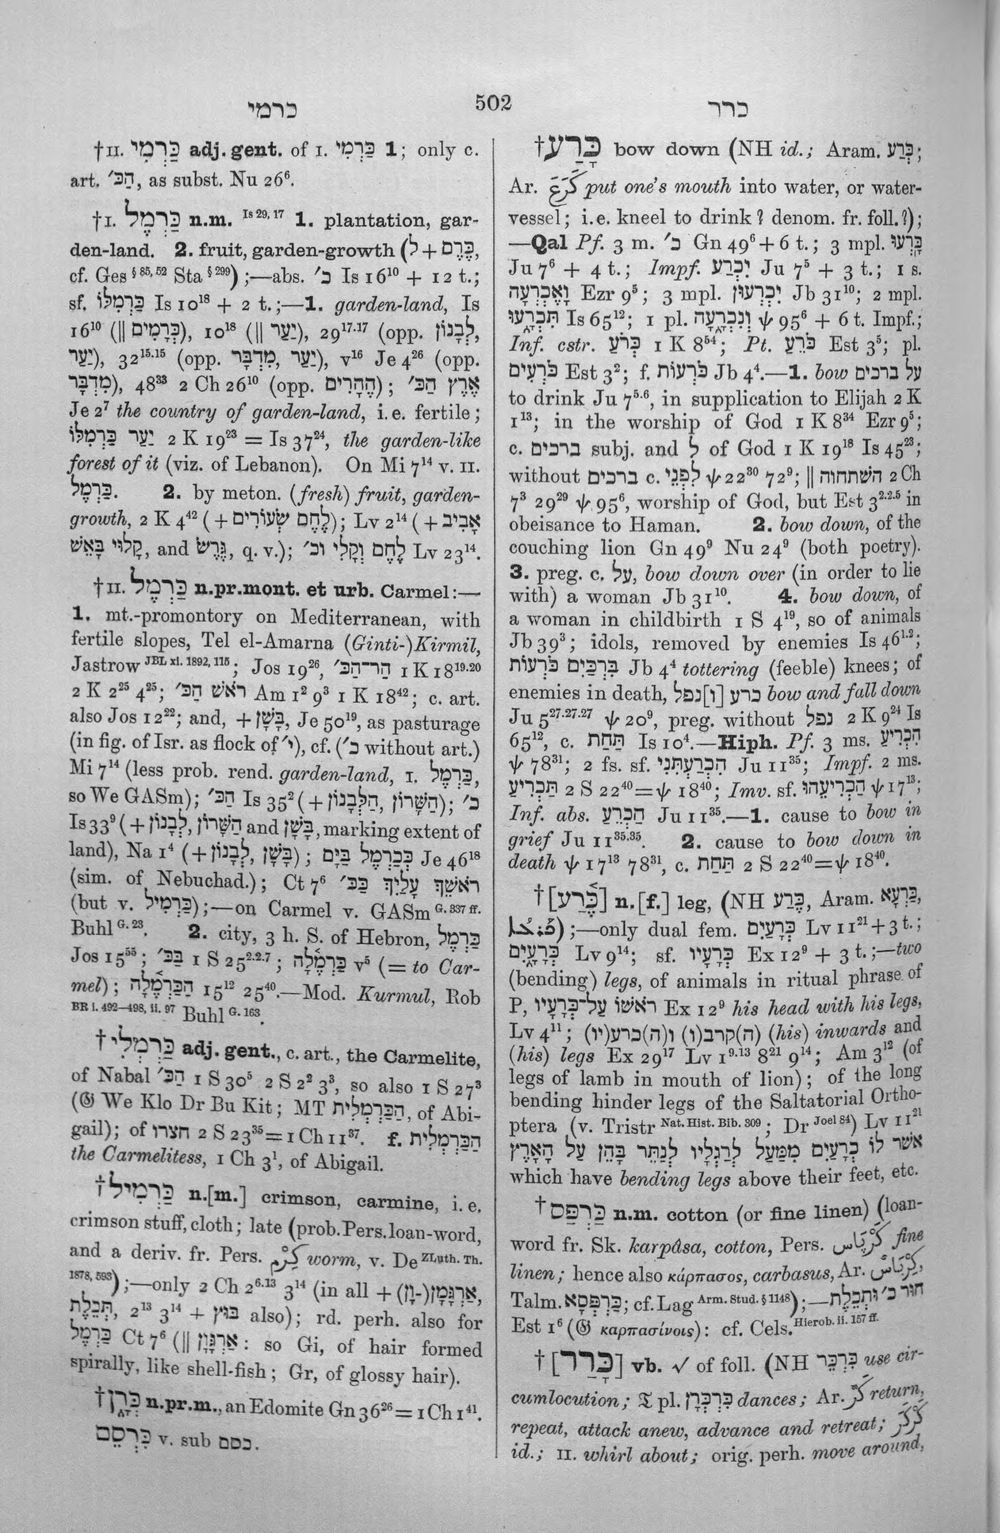 כרמי
502
כרר
†II. כַּרְמִי adj. gent. of I. כַּרְמִי 1; only c.
art. הַכּ׳, as subst. Nu 26⁶.
†I. כַּרְמֶל n.m. Is 29, 17 1. plantation, gar-
den-land. 2. fruit, garden-growth (כֶּרֶם + ל,
cf. Ges § 85, 52 Sta § 299) ;—abs. כ׳ Is 16¹⁰ + 12 t.;
sf. כַּרְמִלּוֹ Is 10¹⁸ + 2 t.;—1. garden-land, Is
16¹⁰ (|| כְּרָמִים), 10¹⁸ (|| יַעַר), 29¹⁷·¹⁷ (opp. לְבָנוֹן,
יַעַר), 32¹⁵·¹⁵ (opp. מִדְבָּר, יַעַר), v¹⁶ Je 4²⁶ (opp.
מִדְבָּר), 48³³ 2 Ch 26¹⁰ (opp. הֶהָרִים); אֶרֶץ הַכּ׳
Je 2⁷ the country of garden-land, i.e. fertile;
יַעַר כַּרְמִלּוֹ 2 K 19²³ = Is 37²⁴, the garden-like
forest of it (viz. of Lebanon). On Mi 7¹⁴ v. II.
כַּרְמֶל. 2. by meton. (fresh) fruit, garden-
growth, 2 K 4⁴² (+ לֶחֶם שְׂעוֹרִים); Lv 2¹⁴ (+ אָבִיב
קָלוּי בָּאֵשׁ, and גֶּרֶשׂ, q. v.); לֶחֶם וְקָלִי וכ׳ Lv 23¹⁴.
†II. כַּרְמֶל n.pr.mont. et urb. Carmel:—
1. mt.-promontory on Mediterranean, with
fertile slopes, Tel el-Amarna (Ginti-)Kirmil,
Jastrow JBL xi. 1892, 115; Jos 19²⁶, הַר־הַכּ׳ 1 K 18¹⁹·²⁰
2 K 2²⁵ 4²⁵; רֹאשׁ הַכּ׳ Am 1² 9³ 1 K 18⁴²; c. art.
also Jos 12²²; and, + בָּשָׁן, Je 50¹⁹, as pasturage
(in fig. of Isr. as flock of י׳), cf. (כ׳ without art.)
Mi 7¹⁴ (less prob. rend. garden-land, I. כַּרְמֶל,
so We GASm); הַכּ׳ Is 35² (+ הַלְּבָנוֹן, הַשָּׁרוֹן); כ׳
Is 33⁹ (+ לְבָנוֹן, הַשָּׁרוֹן and בָּשָׁן, marking extent of
land), Na 1⁴ (+ לְבָנוֹן, בָּשָׁן); כְּכַרְמֶל בַּיָּם Je 46¹⁸
(sim. of Nebuchad.); Ct 7⁶ רֹאשֵׁךְ עָלַיִךְ כַּכּ׳
(but v. כַּרְמִיל);—on Carmel v. GASm G. 337 ff.
Buhl G. 23. 2. city, 3 h. S. of Hebron, כַּרְמֶל
Jos 15⁵⁵; בַּכּ׳ 1 S 25²·²·⁷; כַּרְמֶלָה v⁵ (= to Car-
mel); הַכַּרְמֶלָה 15¹² 25⁴⁰.—Mod. Kurmul, Rob
BR i. 492–498, ii. 97 Buhl G. 163.
†כַּרְמְלִי adj. gent., c. art., the Carmelite,
of Nabal הַכּ׳ 1 S 30⁵ 2 S 2² 3³, so also 1 S 27³
(𝔊 We Klo Dr Bu Kit; MT הַכַּרְמְלִית, of Abi-
gail); of חצרו 2 S 23³⁵ = 1 Ch 11³⁷. f. הַכַּרְמְלִית
the Carmelitess, 1 Ch 3¹, of Abigail.
†כַּרְמִיל n.[m.] crimson, carmine, i. e.
crimson stuff, cloth; late (prob. Pers. loan-word,
and a deriv. fr. Pers. کرم worm, v. De ZLuth. Th.
1878, 593) ;—only 2 Ch 2⁶·¹³ 3¹⁴ (in all + אַרְגָּמָן(-וָן),
תְּכֵלֶת, 2¹³ 3¹⁴ + בּוּץ also); rd. perh. also for
כַּרְמֶל Ct 7⁶ (|| אַרְגָּמָן: so Gi, of hair formed
spirally, like shell-fish; Gr, of glossy hair).
†כְּרָן n.pr.m., an Edomite Gn 36²⁶ = 1 Ch 1⁴¹.
כִּרְסֵם v. sub כסם.
†כָּרַע bow down (NH id.; Aram. כְּרַע;
Ar. كَرَعَ put one's mouth into water, or water-
vessel; i.e. kneel to drink? denom. fr. foll.?);
—Qal Pf. 3 m. כ׳ Gn 49⁶ + 6 t.; 3 mpl. כָּרְעוּ
Ju 7⁶ + 4 t.; Impf. יִכְרַע Ju 7⁵ + 3 t.; 1 s.
וָאֶכְרְעָה Ezr 9⁵; 3 mpl. יִכְרְעוּן Jb 31¹⁰; 2 mpl.
תִּכְרָעוּ Is 65¹²; 1 pl. וְנִכְרָעָה ψ 95⁶ + 6 t. Impf.;
Inf. cstr. כְּרֹעַ 1 K 8⁵⁴; Pt. כֹּרֵעַ Est 3⁵; pl.
כֹּרְעִים Est 3²; f. כֹּרְעוֹת Jb 4⁴.—1. bow על ברכים
to drink Ju 7⁵·⁶, in supplication to Elijah 2 K
1¹³; in the worship of God 1 K 8³⁴ Ezr 9⁵;
c. ברכים subj. and לְ of God 1 K 19¹⁸ Is 45²³;
without ברכים c. לִפְנֵי ψ 22³⁰ 72⁹; || השתחוה 2 Ch
7³ 29²⁹ ψ 95⁶, worship of God, but Est 3²·²·⁵ in
obeisance to Haman. 2. bow down, of the
couching lion Gn 49⁹ Nu 24⁹ (both poetry).
3. preg. c. עַל, bow down over (in order to lie
with) a woman Jb 31¹⁰. 4. bow down, of
a woman in childbirth 1 S 4¹⁹, so of animals
Jb 39³; idols, removed by enemies Is 46¹·²;
בִּרְכַּיִם כֹּרְעוֹת Jb 4⁴ tottering (feeble) knees; of
enemies in death, כרע [ו]נפל bow and fall down
Ju 5²⁷·²⁷·²⁷ ψ 20⁹, preg. without נפל 2 K 9²⁴ Is
65¹², c. תַּחַת Is 10⁴.—Hiph. Pf. 3 ms. הִכְרִיעַ
ψ 78³¹; 2 fs. sf. הִכְרַעְתִּנִי Ju 11³⁵; Impf. 2 ms.
תַּכְרִיעַ 2 S 22⁴⁰ = ψ 18⁴⁰; Imv. sf. הַכְרִיעֵהוּ ψ 17¹³;
Inf. abs. הַכְרֵעַ Ju 11³⁵.—1. cause to bow in
grief Ju 11³⁵·³⁵. 2. cause to bow down in
death ψ 17¹³ 78³¹, c. תַּחַת 2 S 22⁴⁰ = ψ 18⁴⁰.
†[כֶּרַע] n.[f.] leg, (NH כֶּרַע, Aram. כַּרְעָא,
ܟܪܥܐ) ;—only dual fem. כְּרָעַיִם Lv 11²¹ + 3 t.;
כְּרָעָיִם Lv 9¹⁴; sf. כְּרָעָיו Ex 12⁹ + 3 t.;—two
(bending) legs, of animals in ritual phrase of
P, רֹאשׁוֹ עַל־כְּרָעָיו Ex 12⁹ his head with his legs,
Lv 4¹¹; (ה)קרב(ו) ו(ה)כרע(יו) (his) inwards and
(his) legs Ex 29¹⁷ Lv 1⁹·¹³ 8²¹ 9¹⁴; Am 3¹² (of
legs of lamb in mouth of lion); of the long
bending hinder legs of the Saltatorial Ortho-
ptera (v. Tristr Nat. Hist. Bib. 309; Dr Joel 84) Lv 11²¹
אשר לוֹ כְרָעַיִם מִמַּעַל לְרַגְלָיו לְנַתֵּר בָּהֵן עַל הָאָרֶץ
which have bending legs above their feet, etc.
†כַּרְפַּס n.m. cotton (or fine linen) (loan-
word fr. Sk. karpâsa, cotton, Pers. کرپاس fine
linen; hence also κάρπασος, carbasus, Ar. كرباس,
Talm. כַּרְפְּסָא; cf. Lag Arm. Stud. § 1148) ;—חוּר כ׳ וּתְכֵלֶת
Est 1⁶ (𝔊 καρπασίνοις): cf. Cels. Hierob. ii. 157 ff.
†[כָּרַר] vb. √ of foll. (NH כִּרְכֵּר use cir-
cumlocution; 𝔗 pl. כִּרְכְּרָן dances; Ar. كَرَّ return,
repeat, attack anew, advance and retreat; كَرْكَرَ
id.; II. whirl about; orig. perh. move around,